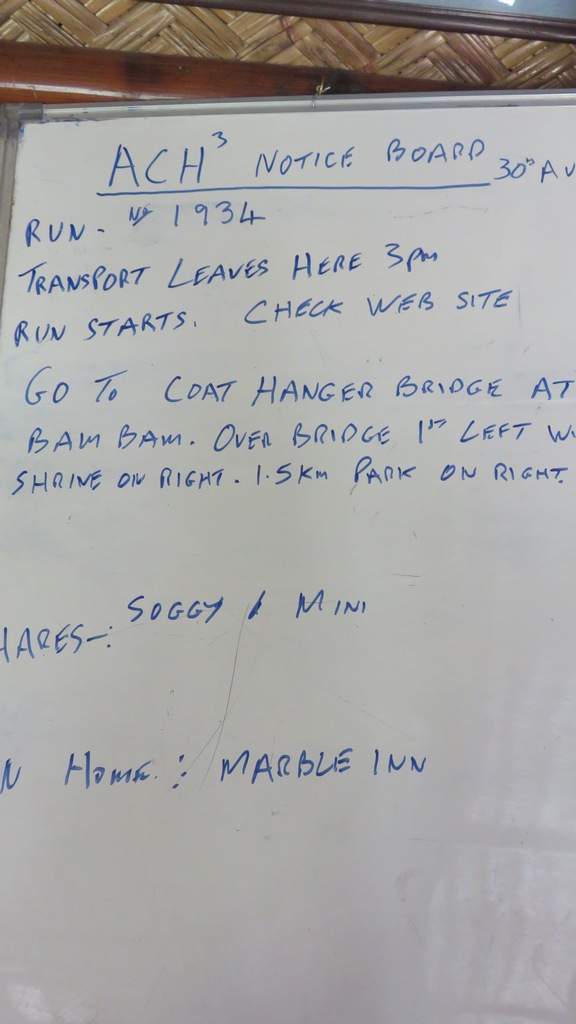 ACH³ NOTICE BOARD 30th AU
RUN - No 1934
TRANSPORT LEAVES HERE 3pm
RUN STARTS. CHECK WEB SITE
GO TO COAT HANGER BRIDGE AT
BAM BAM. OVER BRIDGE 1ST LEFT WI
SHRINE ON RIGHT. 1.5KM PARK ON RIGHT.
HARES-: SOGGY / MINI
N Home. : MARBLE INN